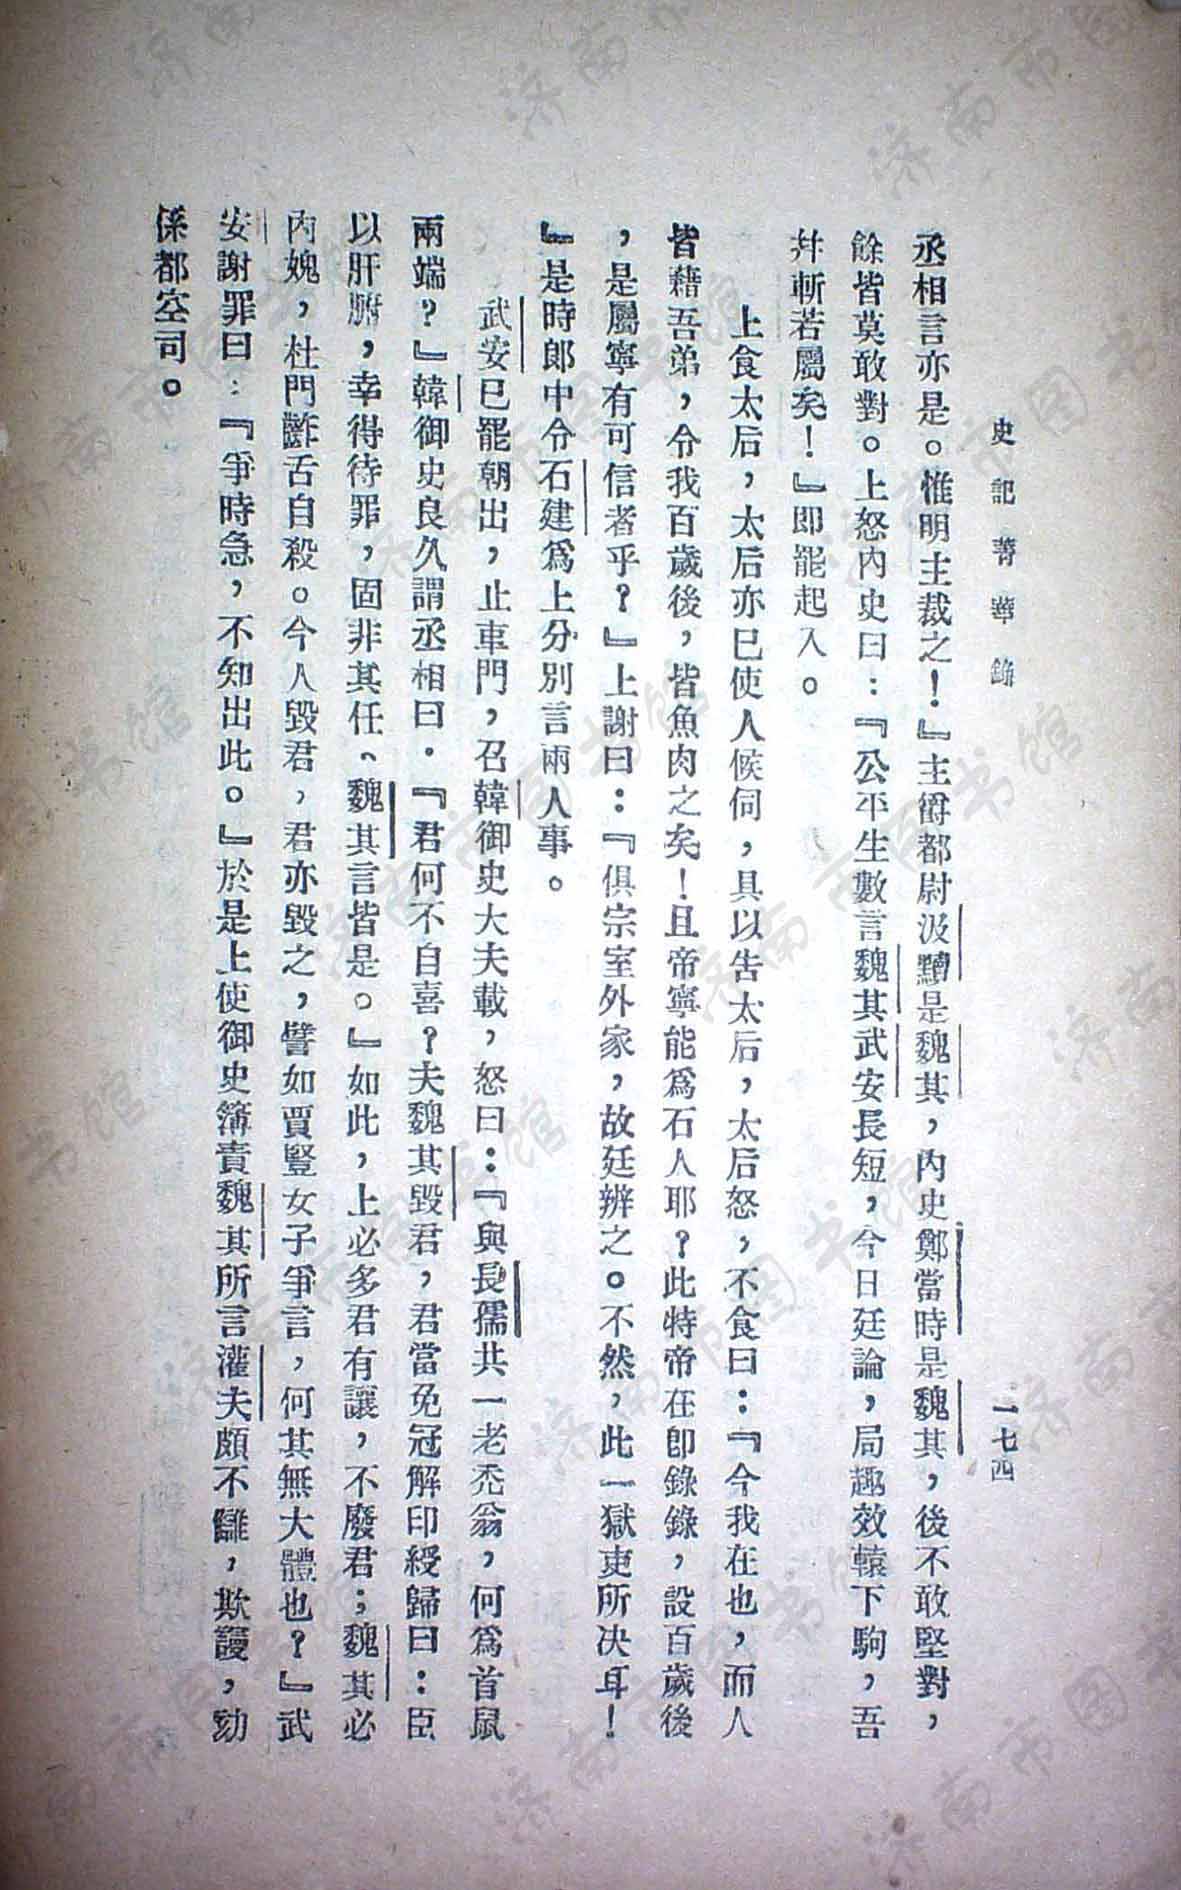 史記菁華錄
一七四
丞相言亦是。惟明主裁之！』主爵都尉汲黯是魏其，內史鄭當時是魏其，後不敢堅對，
餘皆莫敢對。上怒內史曰：『公平生數言魏其武安長短，今日廷論，局趣效轅下駒，吾
幷斬若屬矣！』即罷起入。
上食太后，太后亦已使人候伺，具以告太后，太后怒，不食曰：『今我在也，而人
皆藉吾弟，令我百歲後，皆魚肉之矣！且帝寧能爲石人耶？此特帝在卽錄錄，設百歲後
，是屬寧有可信者乎？』上謝曰：『俱宗室外家，故廷辨之。不然，此一獄吏所決耳！
』是時郎中令石建爲上分別言兩人事。
武安已罷朝出，止車門，召韓御史大夫載，怒曰：『與長孺共一老禿翁，何爲首鼠
兩端？』韓御史良久謂丞相曰．『君何不自喜？夫魏其毀君，君當免冠解印綬歸曰：臣
以肝腑，幸得待罪，固非其任、魏其言皆是。』如此，上必多君有讓，不廢君；魏其必
內媿，杜門齰舌自殺。今人毀君，君亦毀之，譬如賈豎女子爭言，何其無大體也？』武
安謝罪曰：『爭時急，不知出此。』於是上使御史簿責魏其所言灌夫頗不讎，欺謾，劾
係都空司。
济南市图书馆